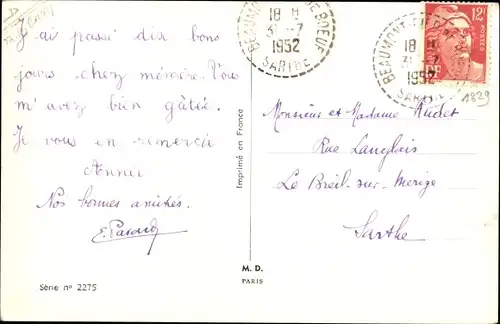 J'ai passé dix bons
jours chez mémère. Vous
m'avez bien gâtée.
Je vous en remercie
Annie
Nos bonnes amitiés.
Série nº 2275
Imprimé en France
M. D.
PARIS
BEAUMONT-PIED-DE-BOEUF
18 H
31 -7
1952
SARTHE
18 H
31 -7
1952
12F
POSTES
1829
Monsieur et Madame Hudet
Rue Langlais
Le Breil-sur-Merize
Sarthe